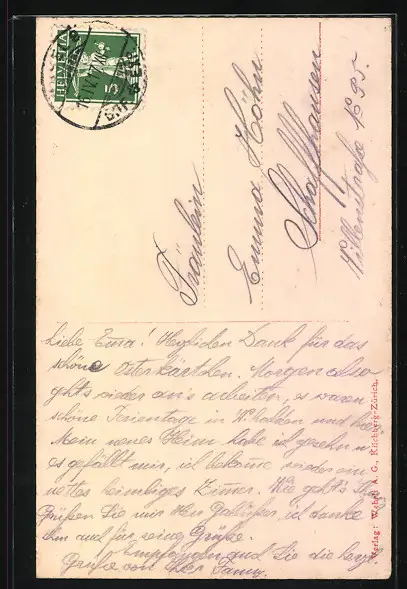 HELVETIA
5
Fräulein
Emma Höhn
Schaffhausen
No 95.
Liebe Ema! Herzlichen Dank für das
schöne Osterkärtchen. Morgen also
ghts wieder an's arbeiten, es waren
schöne Ferientage in
Mein neues Heim habe ich gesehn u.
es gefällt mir, ich bekomme wieder ein
nettes heimeliges Zimer. Wie geht's
Grüßen Sie mir Herr ich danke
ihm auch für seine Grüße.
Empfangen auch Sie die herzl.
Grüße von Fanny.
Verlag: A. G., Kilchberg-Zürich.